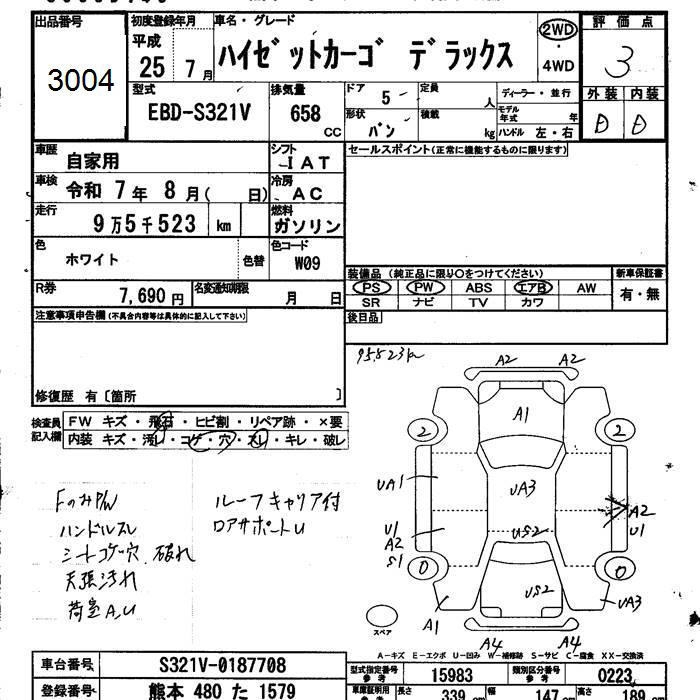 出品番号 初度登録年月 車名・グレード 2WD ・ 4WD 評価点
3004 平成 25年 7月 ハイゼットカーゴ デラックス 3
型式 EBD-S321V 排気量 658 CC ドア 5 定員 人 ディーラー・並行 外装 内装
形状 バン 積載 kg モデル年式 年 ハンドル 左・右 D D
車歴 自家用 シフト IAT セールスポイント(正常に機能するものに限ります)
車検 令和 7年 8月( 日) 冷房 AC
走行 9万5千523 km 燃料 ガソリン
色 ホワイト 色替 色コード W09
装備品(純正品に限り○をつけてください) 新車保証書
R券 7,690円 名変通知期限 月 日 PS PW ABS エアB AW 有・無
SR ナビ TV カワ
注意事項申告欄(不具合内容等は具体的に記入して下さい) 後日品
95,823km
修復歴 有〔箇所 〕
検査員記入欄 FW キズ・飛石・ヒビ割・リペア跡・×要
内装 キズ・汚レ・コゲ・穴・スレ・キレ・破レ
FのみP/W ルーフキャリア付
ハンドルスレ ロアサポートU
シートコゲ・穴 破れ
天張汚れ
荷室A,U
A2 A2
A1
2 2
UA1 UA3
A2
U1 U1
A2
S1 US2
0 0
US2
A1 UA3
スペア A4 A4
A-キズ E-エクボ U-凹み W-補修跡 S-サビ C-腐食 XX-交換済
車台番号 S321V-0187708 型式指定番号 参考 15983 類別区分番号 参考 0223
登録番号 熊本 480 た 1579 車庫証明用 参考 長さ 339 cm 幅 147 cm 高さ 189 cm